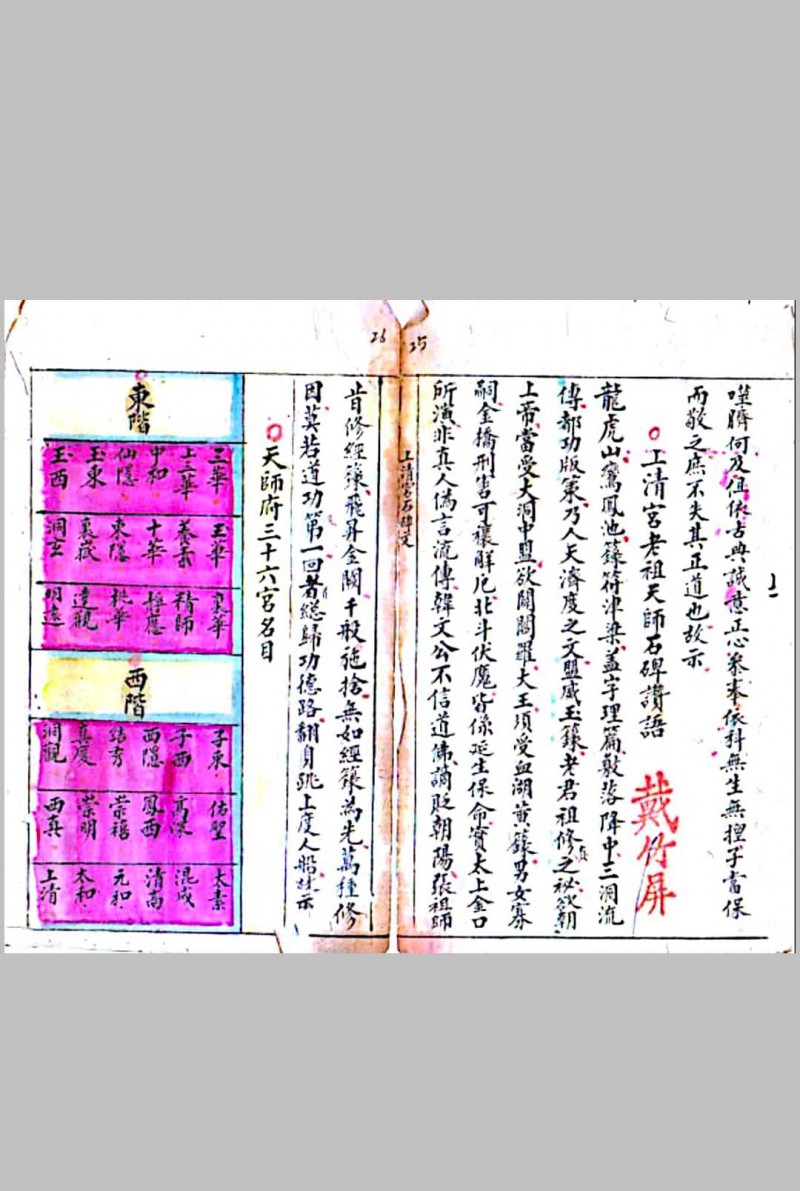 噬臍何及但依古典誠意正心奉依科無生無
而敬之庶不失其正道也故示
上清宮老祖天師石碑讚語
戴竹屏
龍虎山鸞鳳池籙符津梁蓋字理篇敷落降中三洞流
傳都功版策乃人天濟度之文盟威玉籙老君祖修真之秘欲朝
上帝當受大洞中盟欲關閻羅大王須受血湖黃籙男女寡
嗣金橋刑害可禳解厄北斗伏魔皆係延生保命實太上金口
所演非真人偽言流傳韓文公不信道佛謫貶朝陽張祖師
上清宮石碑文
25
26
昔修經籙飛昇金闕千般施捨無如經籙為先萬種修
因莫若道功第一回著總歸功德路翻身跳上度人船故示
天師府三十六宮名目
東階
三華
上三華
中和
仙隱
玉東
玉西
玉華
養素
十華
東隱
裏嶽
洞玄
裏華
精師
靜應
桃華
達觀
明遠
西階
子東
子西
西隱
真慶
洞觀
仿聖
高深
鳳西
崇禧
崇明
西真
太素
混成
清高
元和
太和
上清